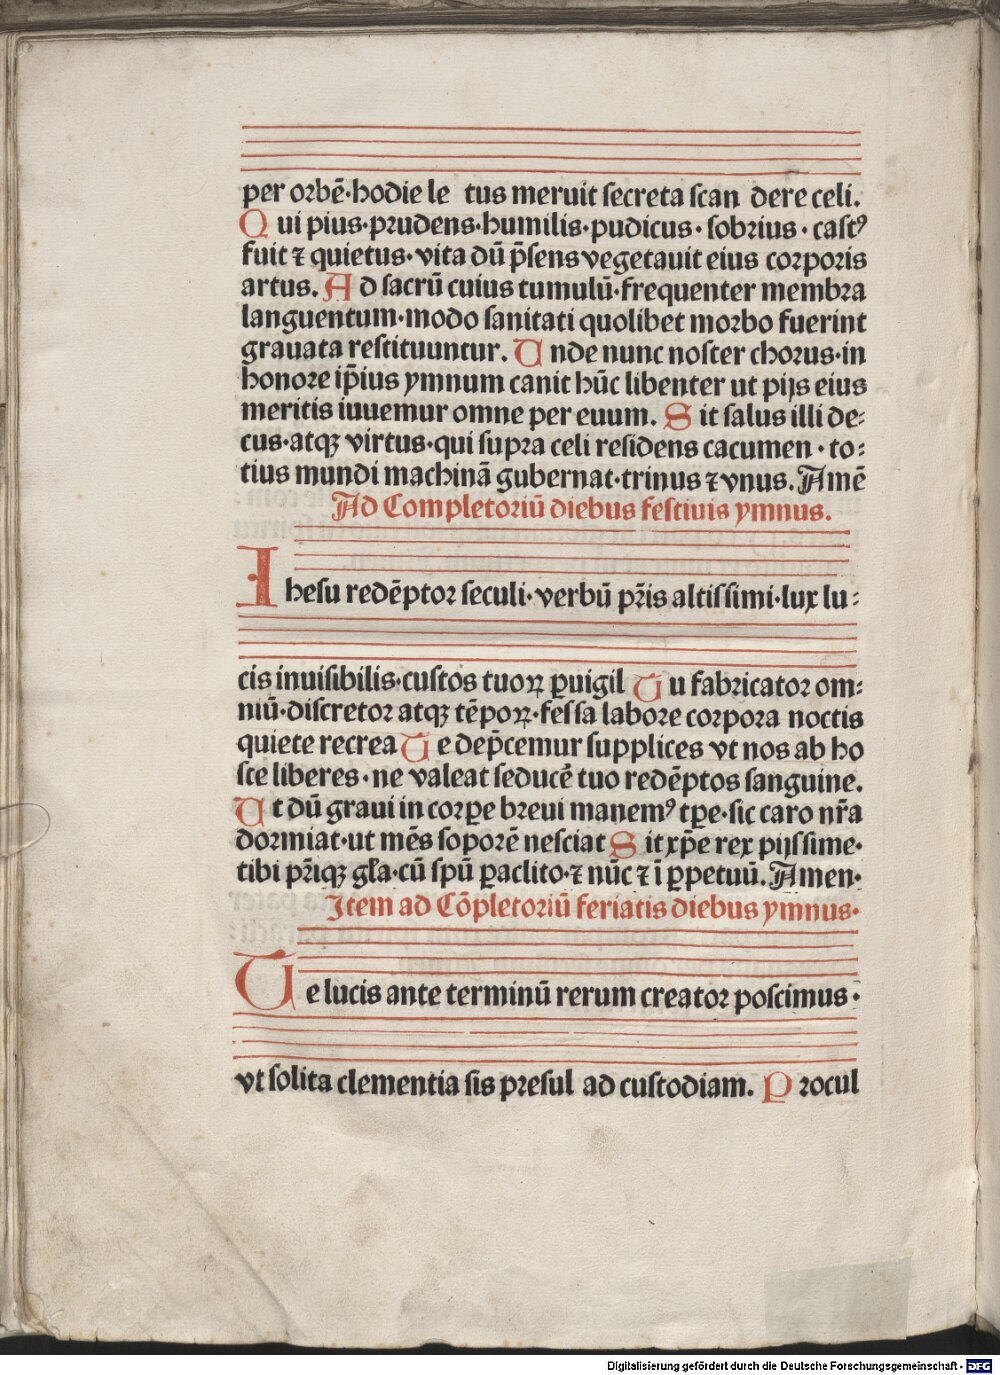 per orbē·hodie le tus meruit secreta scan dere celi.
Qui pius·prudens·humilis·pudicus·sobrius·castꝰ
fuit ⁊ quietus·vita dū p̄sens vegetauit eius corporis
artus. Ad sacrū cuius tumulū·frequenter membra
languentum·modo sanitati quolibet morbo fuerint
grauata restituuntur. Unde nunc noster chorus·in
honore ip̄ius ymnum canit hūc libenter ut pijs eius
meritis iuuemur omne per euum. Sit salus illi de⸗
cus·atqꝫ virtus·qui supra celi residens cacumen·to⸗
tius mundi machinā gubernat·trinus ⁊ vnus. Amē
Ad Completoriū diebus festiuis ymnus.
Ihesu redēptor seculi·verbū pr̄is altissimi·lux lu⸗
cis inuisibilis·custos tuoꝝ ꝑuigil Tu fabricator om⸗
niū·discretor atqꝫ tēpoꝝ·fessa labore corpora noctis
quiete recrea Te dep̄cemur supplices vt nos ab ho
ste liberes·ne valeat seducē tuo redēptos sanguine.
Ut dū graui in corꝑe breui manemꝰ tꝑe·sic caro nr̄a
dormiat·ut mēs soporē nesciat Sit xp̄e rex pijssime·
tibi pr̄iqꝫ gl̄a·cū spū ꝑaclito·⁊ nūc ⁊ ī ꝑpetuū. Amen·
Item ad Cōpletoriū feriatis diebus ymnus·
Te lucis ante terminū rerum creator poscimus·
vt solita clementia sis presul ad custodiam. Procul
Digitalisierung gefördert durch die Deutsche Forschungsgemeinschaft - DFG